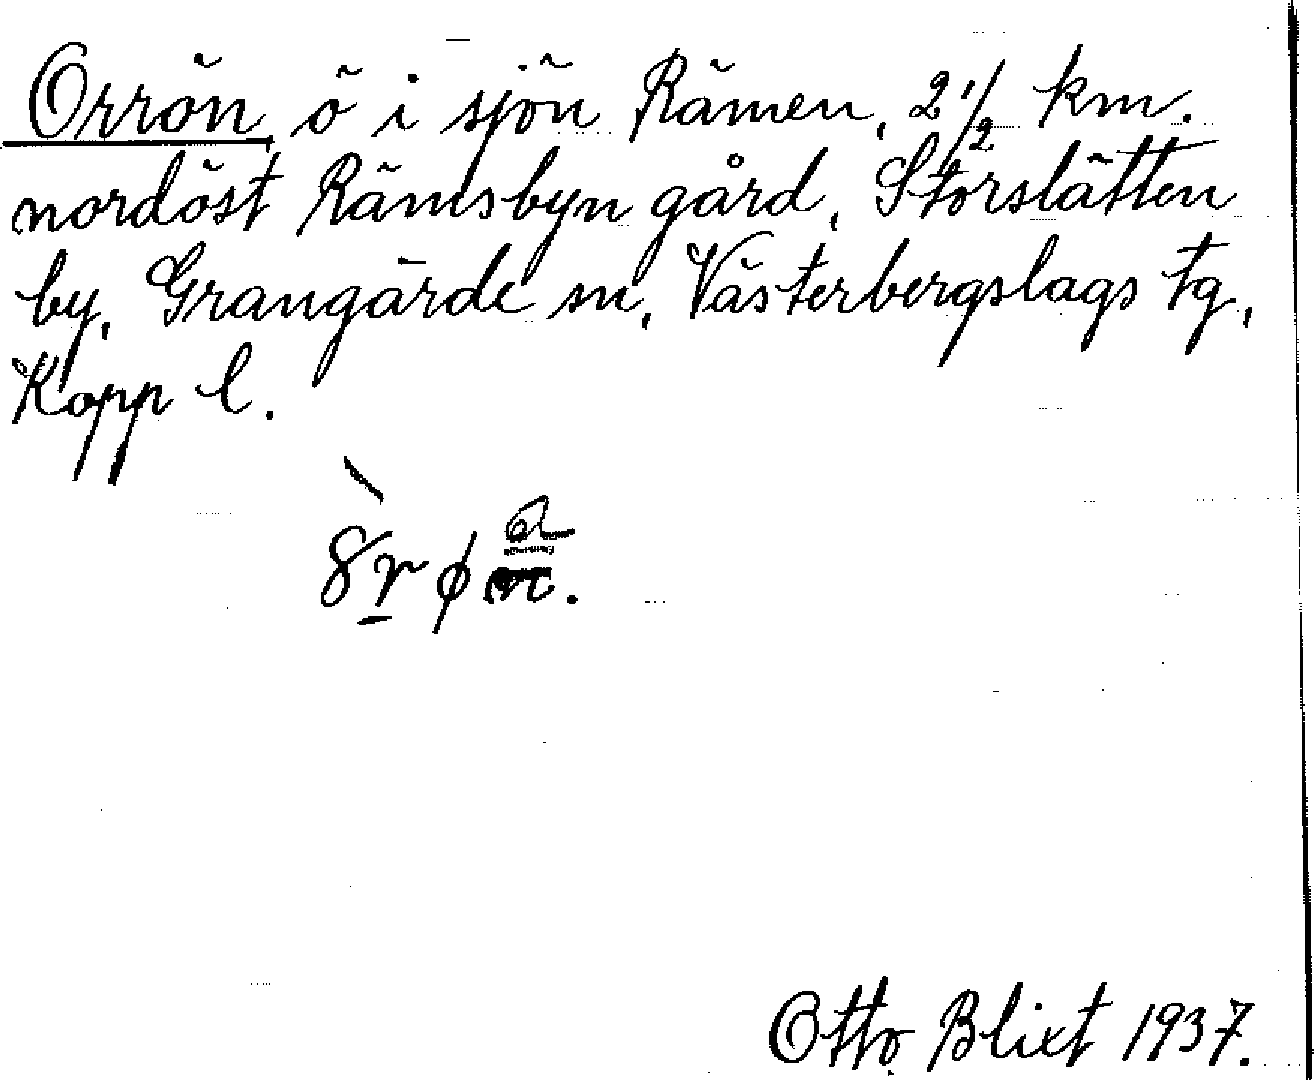 Orrön, ö i sjön Rämen, 2 1/2 km.
nordöst Rämsbyn gård, Storslätten
by, Grangärde sn, Västerbergslags tg,
Kopp l.
Otto Blixt 1937.